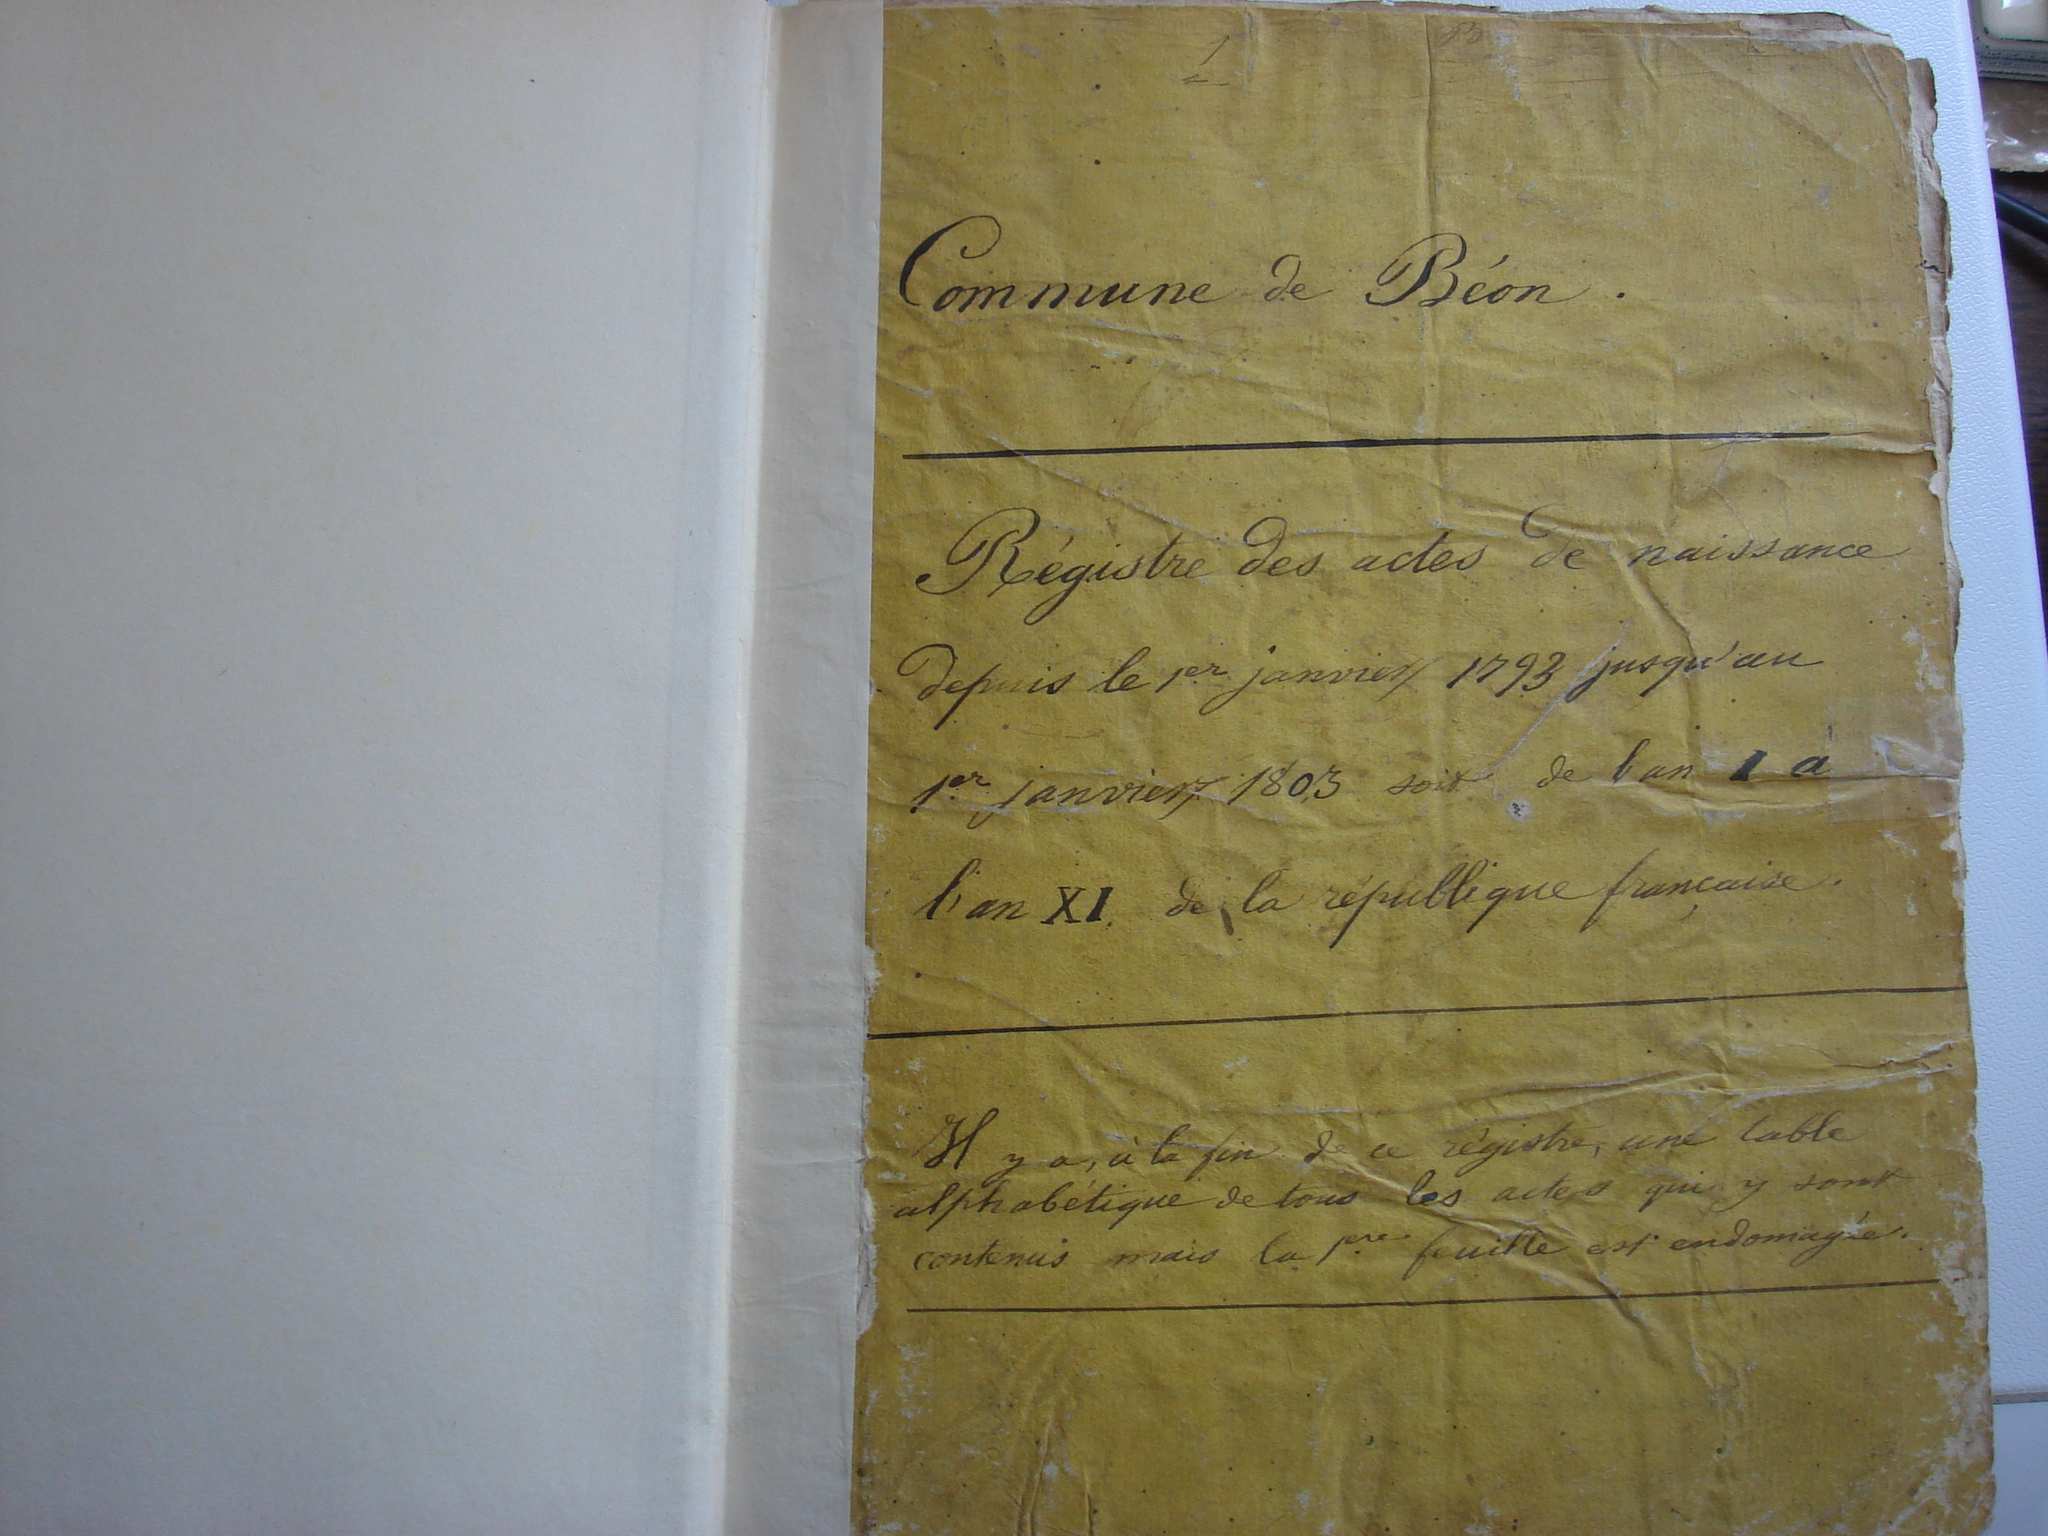 Commune de Béon.
Régistre des actes de naissance
depuis le 1er janvier 1793 jusqu'au
1er janvier 1803 soit de l'an I à
l'an XI de la république française.
Il y a, à la fin de ce régistre, une table
alphabétique de tous les actes qui y sont
contenus mais la 1ère feuille est endomagée.